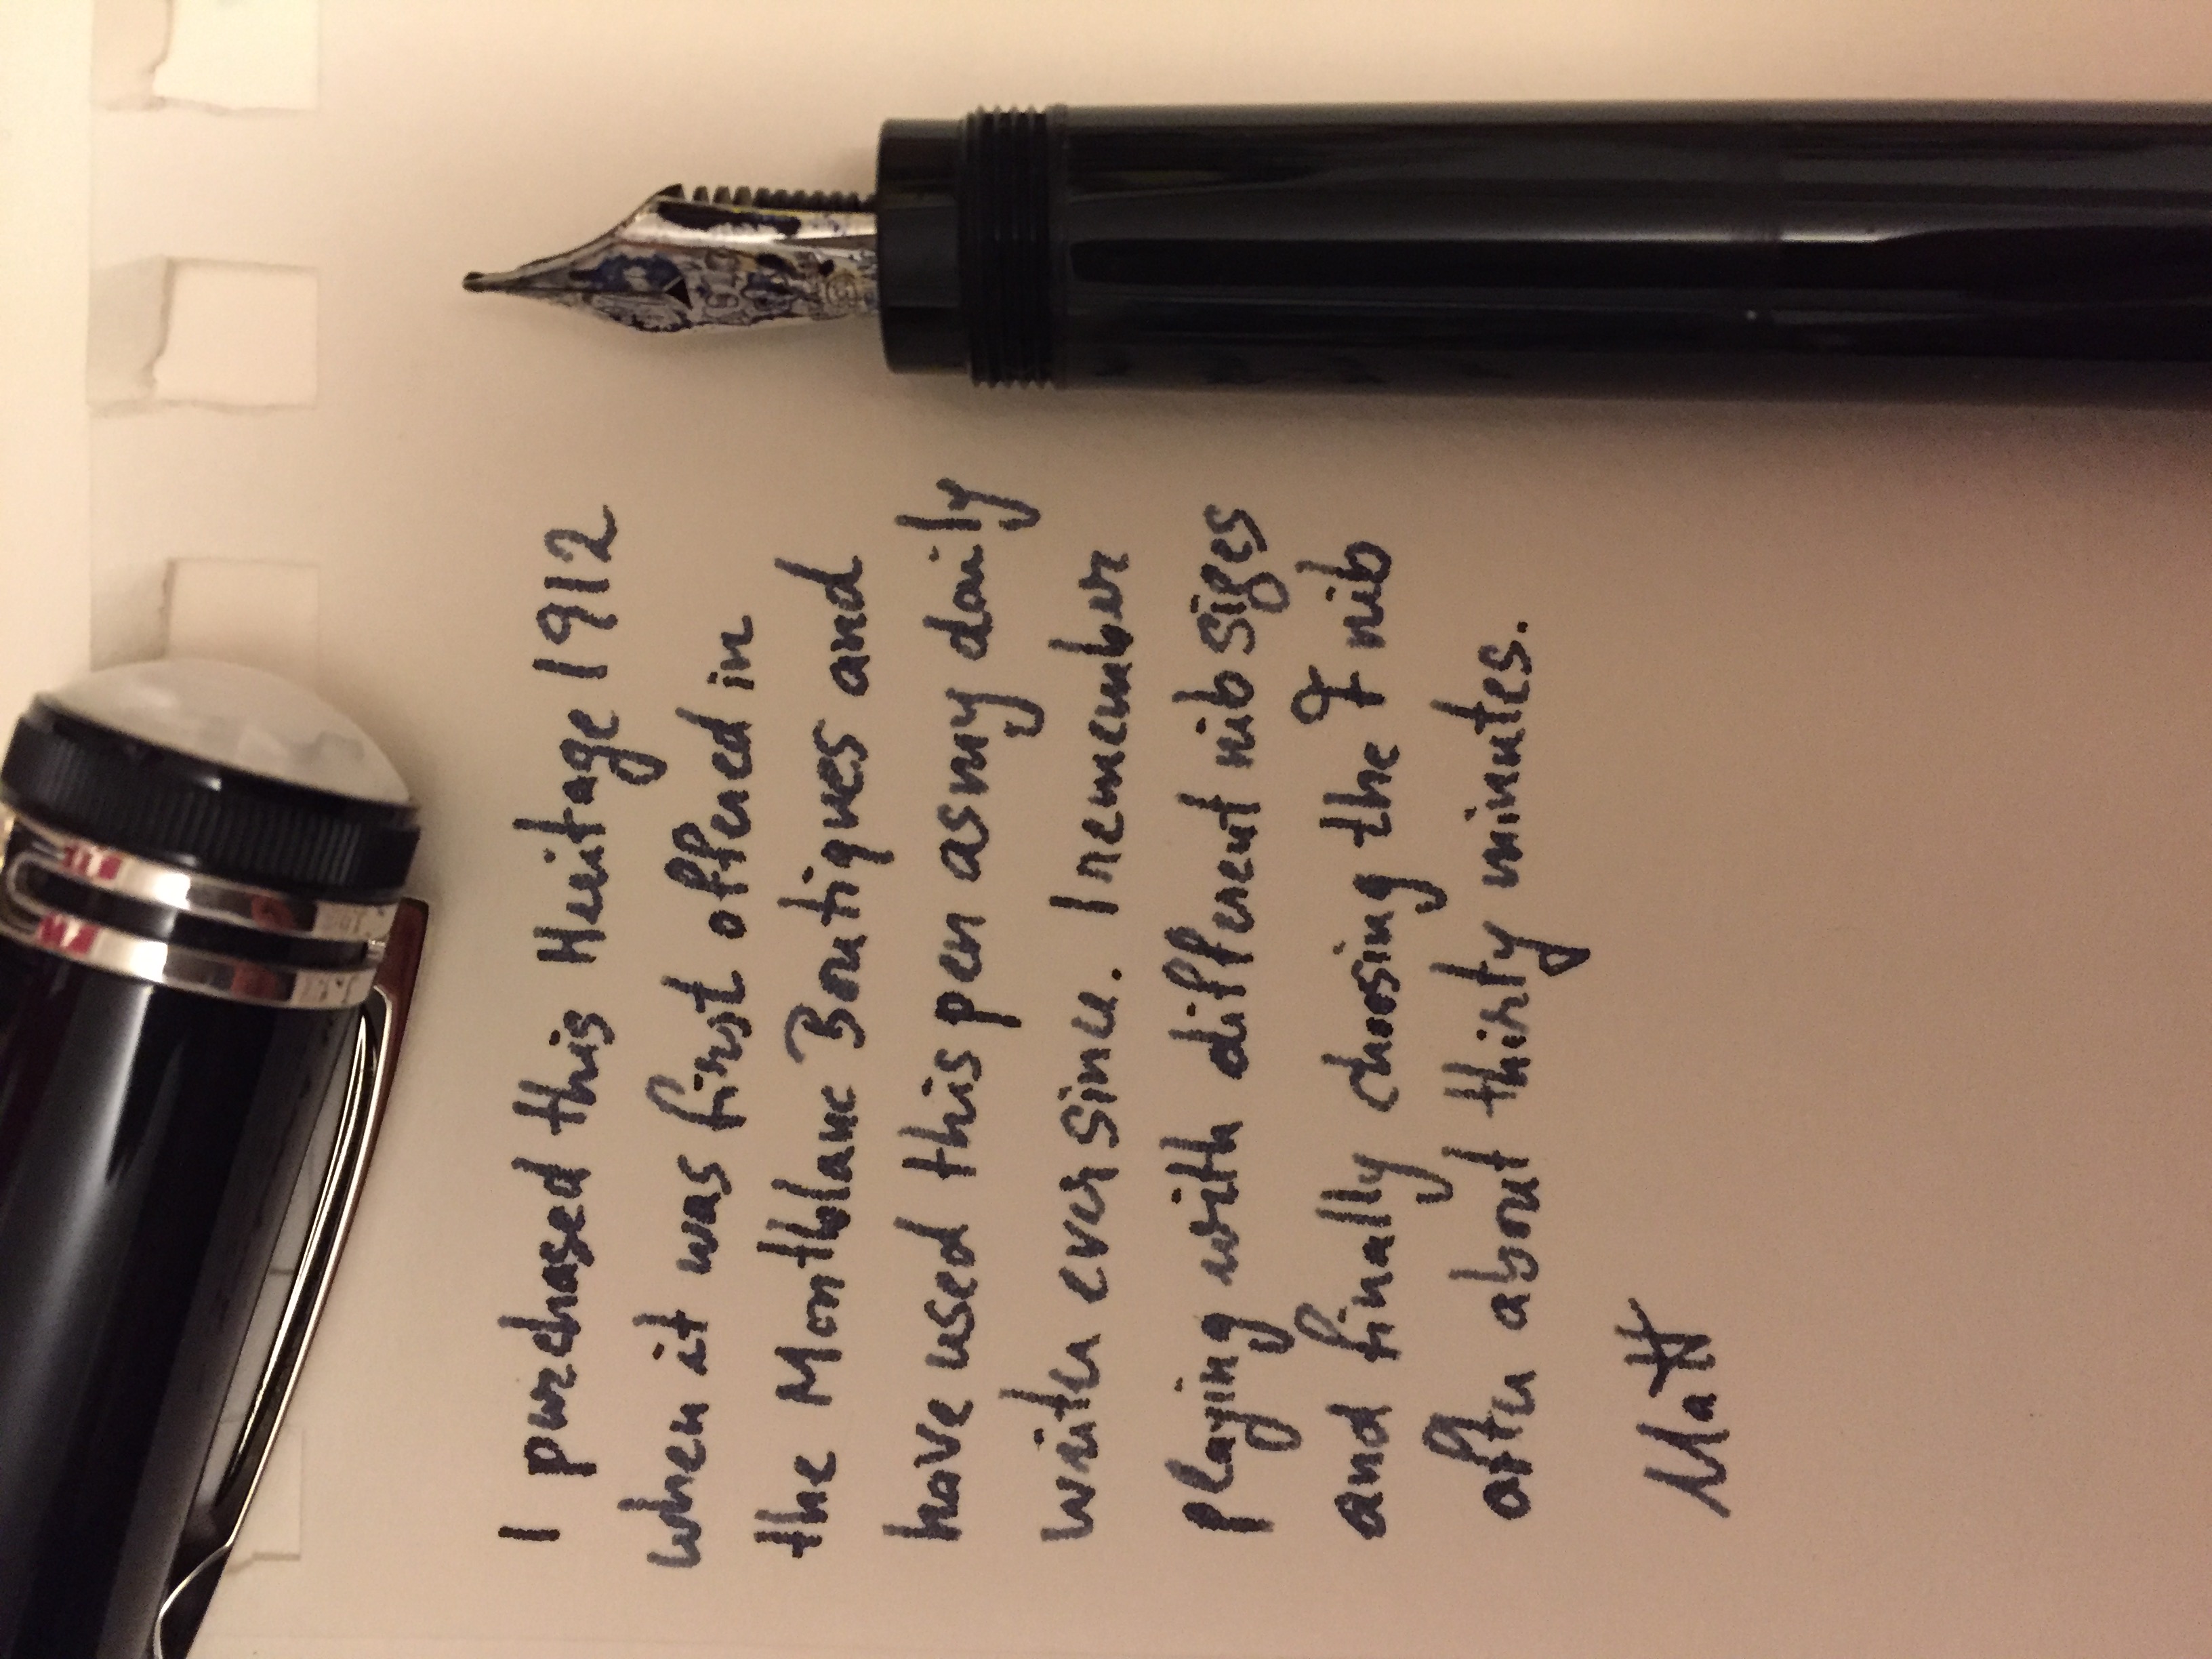 I purchased this Heritage 1912
when it was first offered in
the Montblanc Boutiques and
have used this pen as my daily
writer ever since. I remember
playing with different nib sizes
and finally choosing the F nib
after about thirty minutes.
Matt